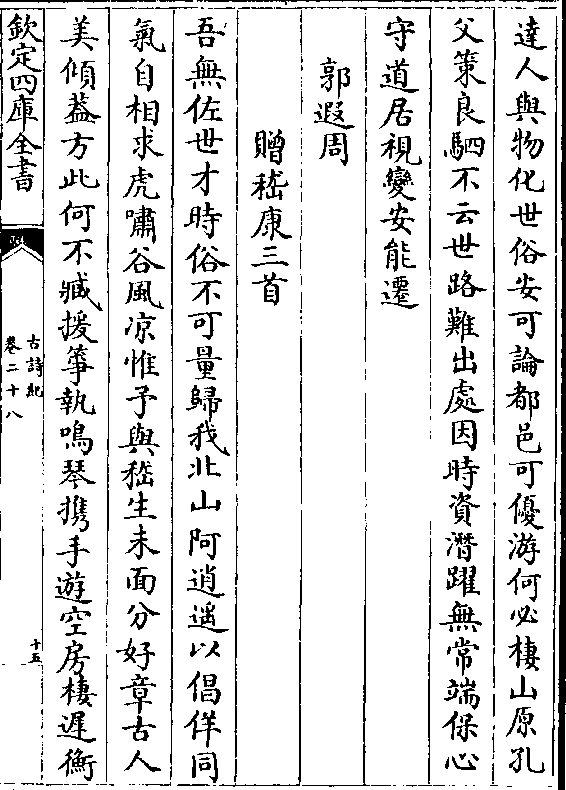 達人與物化世俗安可論都邑可優游何必棲山原孔
父策良駟不云世路難出處因時資潛躍無常端保心
守道居視變安能遷
郭遐周
贈嵇康三首
吾無佐世才時俗不可量歸我北山阿逍遙以倡佯同
氣自相求虎嘯谷風凉惟予與嵇生未面分好章古人
美傾葢方此何不臧援箏執鳴琴携手遊空房棲遲衡
欽定四庫全書
古詩紀
卷二十八
十五